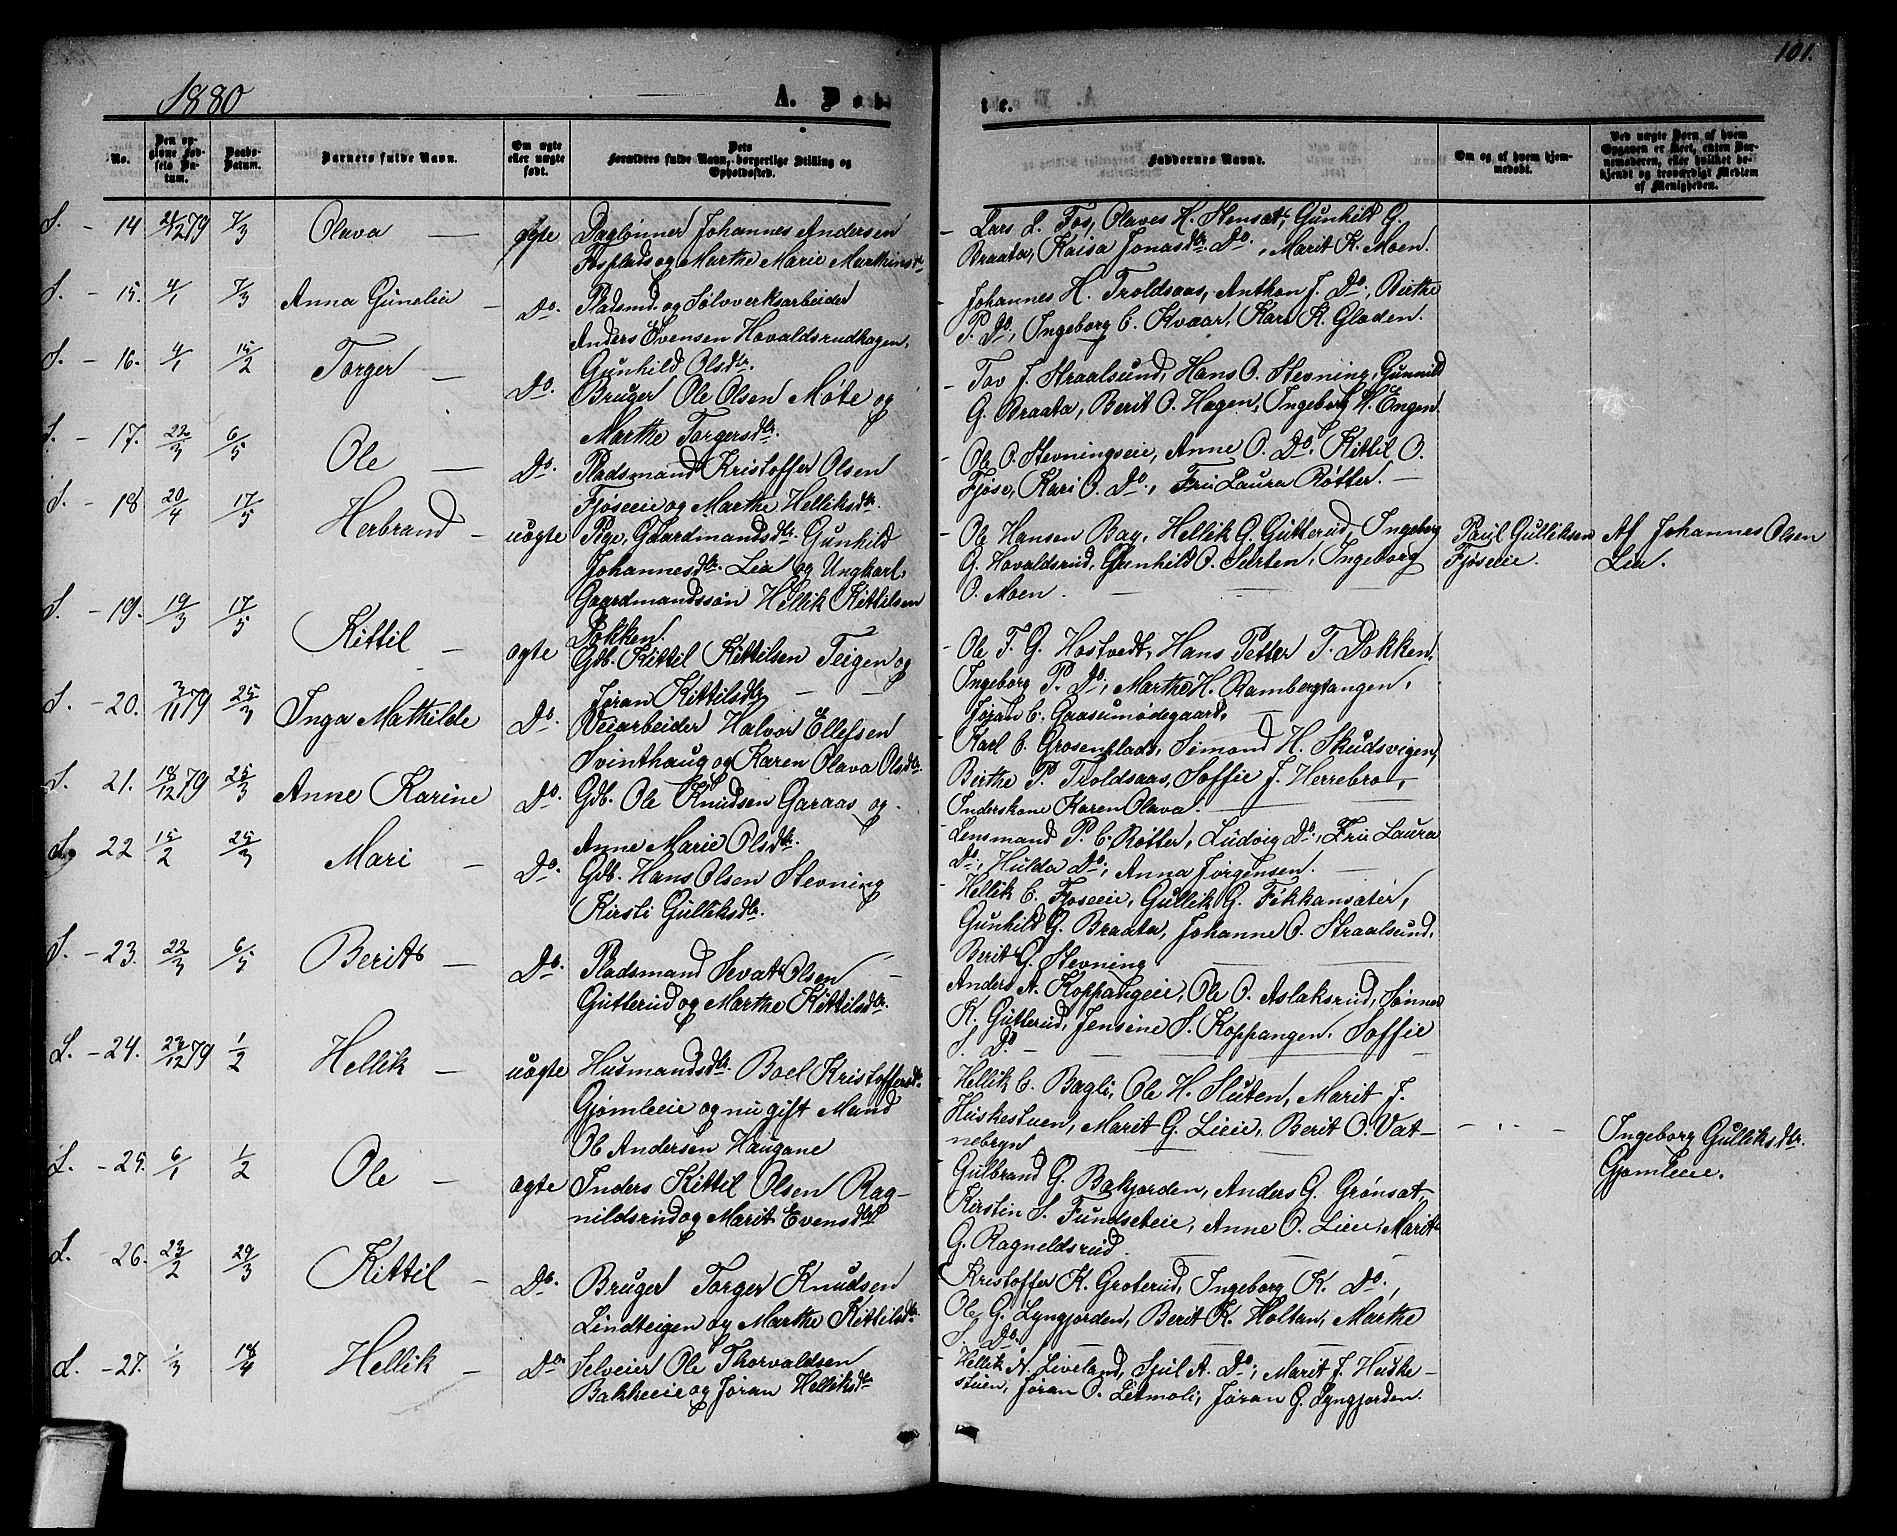 101.
1880
A. Døb-
te.
No.
Den op-
givne Fød-
sels Da-
tum.
Daabs-
Datum.
Barnets fulde Navn.
Om ægte
eller uægte
født.
Dets
Forældres fulde Navn, borgerlige Stilling og
Opholdssted.
Faddernes Navne.
Om og af hvem hjem-
medøbt.
Ved uægte Børn af hvem
Opgaven er skeet, enten Bar-
nemoderen, eller hvilket be-
kjendt og troværdigt Medlem
af Menigheden.
S. - 14 21/12 79 7/3 Olava — ægte Daglønner Johannes Andersen
Fosplads og Marthe Marie Mathinsdtr
- Lars L. Fos, Olaves H. Stensat, Gunhild G.
Braata, Kaisa Jonasdtr. Do., Marit K. Moen.
S. - 15. 4/1 7/3 Anna Gunelie — Do. Pladsmd. og Sølvverksarbeider
Anders Evensen Hovaldsrudhagen,
Gunhild Olsdtr.
- Johannes H. Troldsaas, Anthon J. Do., Birthe
P. Do., Ingeborg C. Kvaar, Kari K. Gladen.
S. - 16. 4/1 15/2 Torger — Do. Bruger Ole Olsen Møte og
Marthe Torgersdtr.
- Tov J. Straalsund, Hans O. Stevning, Gunnild
G. Braata, Berit O. Hagen, Ingeborg H. Engen.
S. - 17. 22/3 6/5 Ole — Do. Pladsmand Kristoffer Olsen
Fjøseeie og Marthe Helliksdtr.
- Ole O. Stevningseie, Anne O. Do. Kittil O.
Fjøse, Kari O. Do., Fru Laura Røtter. —
S. - 18 20/4 17/5 Herbrand — uægte Pige, Gaardmandsdtr. Gunhild
Johannesdtr. Lia og Ungkarl,
Gaardmandssøn Hellik Kittilsen
Dokken.
- Ole Hansen Bay, Hellik G. Gutterud, Ingeborg
G. Hovaldsrud, Gunhild O. Selsten, Ingeborg
O. Moen.
Paul Gulliksen
Fjøseeie.
Af Johannes Olsen
Lia.
S. - 19. 19/3 17/5 Kittil — ægte Gdb. Kittil Kittilsen Teigen og
Jøran Kittilsdtr — —
- Ole T. G. Hostvedt, Hans Petter T. Dokken,
Ingeborg P. Do., Marthe H. Rambergtangen,
Jøran C. Gaasumødegaard,
S. - 20. 3/11 79 25/3 Inga Mathilde Do. Veiarbeider Halvor Ellefsen
Svinthaug og Karen Olava Olsdtr.
- Karl C. Grosenplads, Simond H. Skudsvigen,
Birthe P. Troldsaas, Soffie J. Herrebro,
Inderskone Karen Olava.
S. 21. 18/12 79 25/3 Anne Karine Do. Gdb. Ole Knudsen Garaas og
Anne Marie Olsdtr.
Lensmand P. C. Røtter, Ludvig Do., Fru Laura
Do., Hulda Do., Anna Jørgensen. —
S. 22 15/2 25/3 Mari — Do. Gdb. Hans Olsen Stevning
Kirsti Gulliksdtr.
- Hellik C. Fjøseeie, Gullik G. Fikkansæter,
Gunhild G. Braata, Johanne O. Straalsund,
Berit G. Stevning
S. - 23. 22/3 6/5 Berit — Do. Pladsmand Sevat Olsen —
Gutterud og Marthe Kittilsdtr.
Anders A. Koppangeie, Ole O. Aslaksrud, Sønnev
K. Gutterud, Jensine S. Koppangen, Soffie
S. Do. —
L. - 24. 23/12 79 1/2 Hellik — uægte Husmandsdtr. Boel Kristoffersdtr.
Gjømleeie og nu gift Mand
Ole Andersen Haugane
Hellik C. Bagli, Ole H. Sluten, Marit J.
Huskestuen, Marit G. Lieie, Berit O. Vat-
nebryn
Ingeborg Gulliksdtr.
Gjømleeie.
L. - 25. 6/1 1/2 Ole — ægte Inders Kittil Olsen Rag-
nildsrud og Marit Evensdtr
Gulbrand G. Bakjorden, Anders G. Grønsat,
Kirstin S. Fundseteie, Anne O. Lieie, Marit
G. Ragneldsrud.
L. - 26. 23/2 29/3 Kittil — Do. Bruger Torger Knudsen
Lindteigen og Marthe Kittilsdtr.
Kristoffer K. Groterud, Ingeborg K. Do.,
Ole G. Lyngjorden, Berit K. Holtan, Marthe
S. Do.
L. - 27. 1/3 18/4 Hellik — Do. Selveier Ole Thorvaldsen
Bakkeeie og Jøran Helliksdtr
Hellik N. Liveland, Sjul A. Do., Marit J. Huske-
stuen, Jøran O. Letmoli, Jøran G. Lyngjorden.